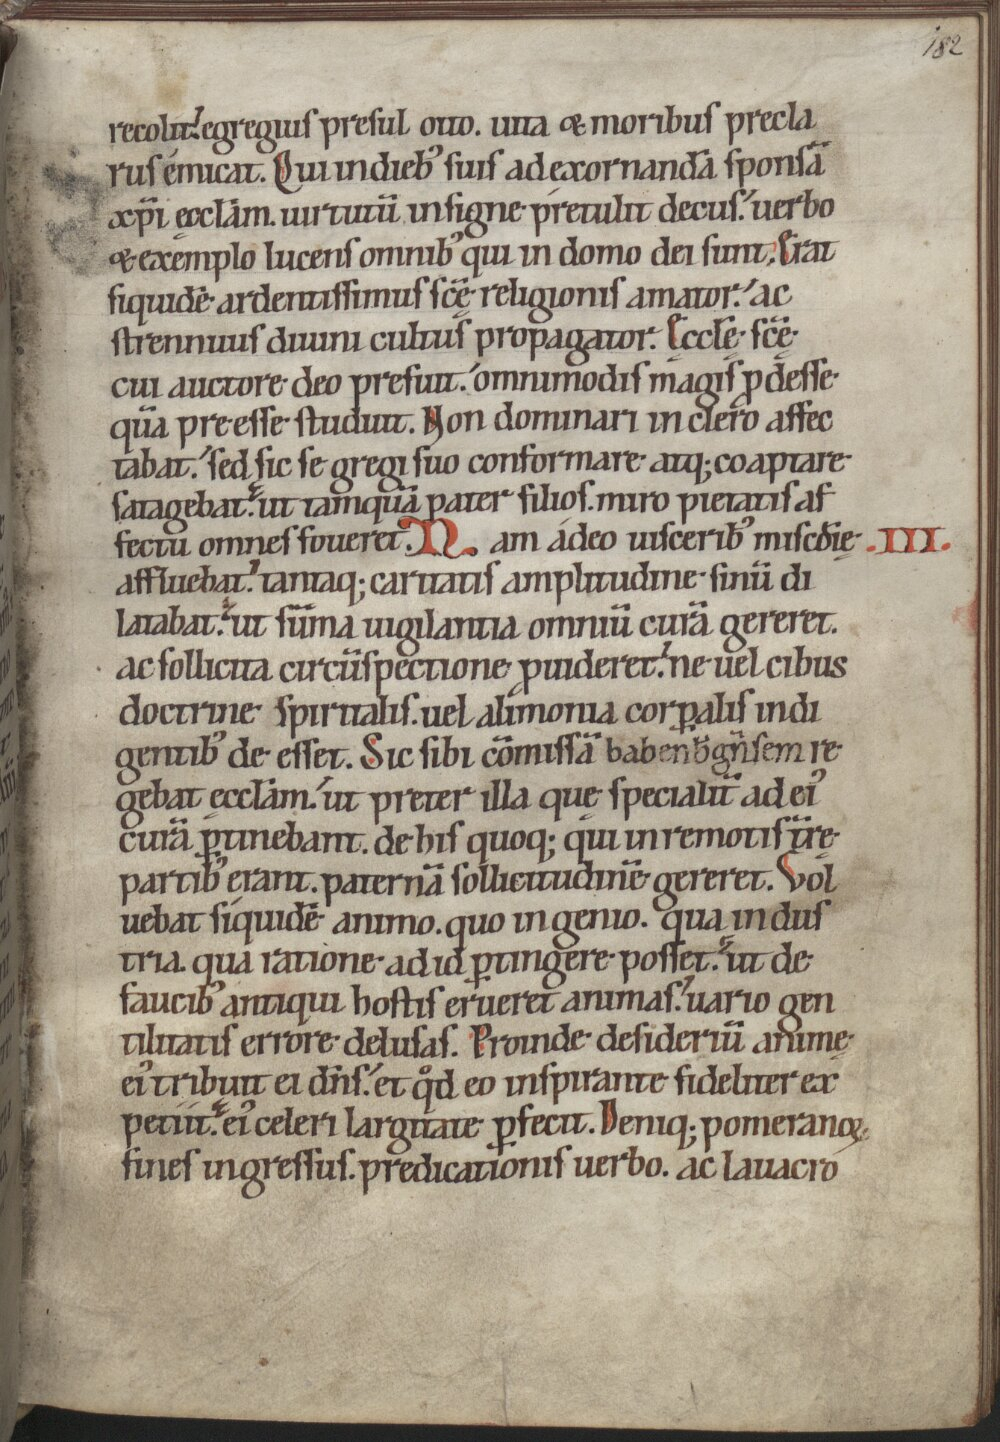 182
recolit᷒. egregius presul otto. uita & moribus precla
rus emicat. Qui in dieb᷒ suis ad exornandā sponsā
xp̄i ęcclām. uirtutū insigne pretulit decus. uerbo
& exemplo lucens omnib᷒ qui in domo dei sunt. Erat
siquidē ardentissimus scę̄ religionis amator. ac
strennuus diuini cultus propagator. Ęccłę scę̄
cui auctore deo prefuit. omnimodis magis ꝓdesse
quā preesse studuit. Non dominari in clero affec
tabat. sed sic se gregi suo conformare atq; coaptare
satagebat. ut tamquā pater filios. miro pietatis af
fectu omnes foueret. Nam adeo uiscerib᷒ miscd̄ię .III.
affluebat. tantaq; caritatis amplitudine sinū di
latabat. ut sūma uigilantia omniū curā gereret.
ac sollicita circūspectione ꝓuideret. ne uel cibus
doctrine spiritalis. uel alimonia corꝑalis indi
gentib᷒ deesset. Sic sibi cōmissā babenb̄gn̄sem re
gebat ęcclām. ut preter illa quę specialit̄ ad ei᷒
curā ꝑtinebant. de his quoq; qui in remotis t̄rę
partib᷒ erant. paternā sollicitudinē gereret. Vol
uebat siquidē animo. quo ingenio. qua indus
tria. qua ratione ad id ꝑtingere posset. ut de
faucib᷒ antiqui hostis erueret animas. uario gen
tilitatis errore delusas. Proinde desideriū animę
ei᷒ tribuit ei dn̄s. et qd̊ eo inspirante fideliter ex
petiit. ei᷒ celeri largitate ꝑfecit. Deniq; pomeranoꝝ
fines ingressus. predicationis uerbo. ac lauacro